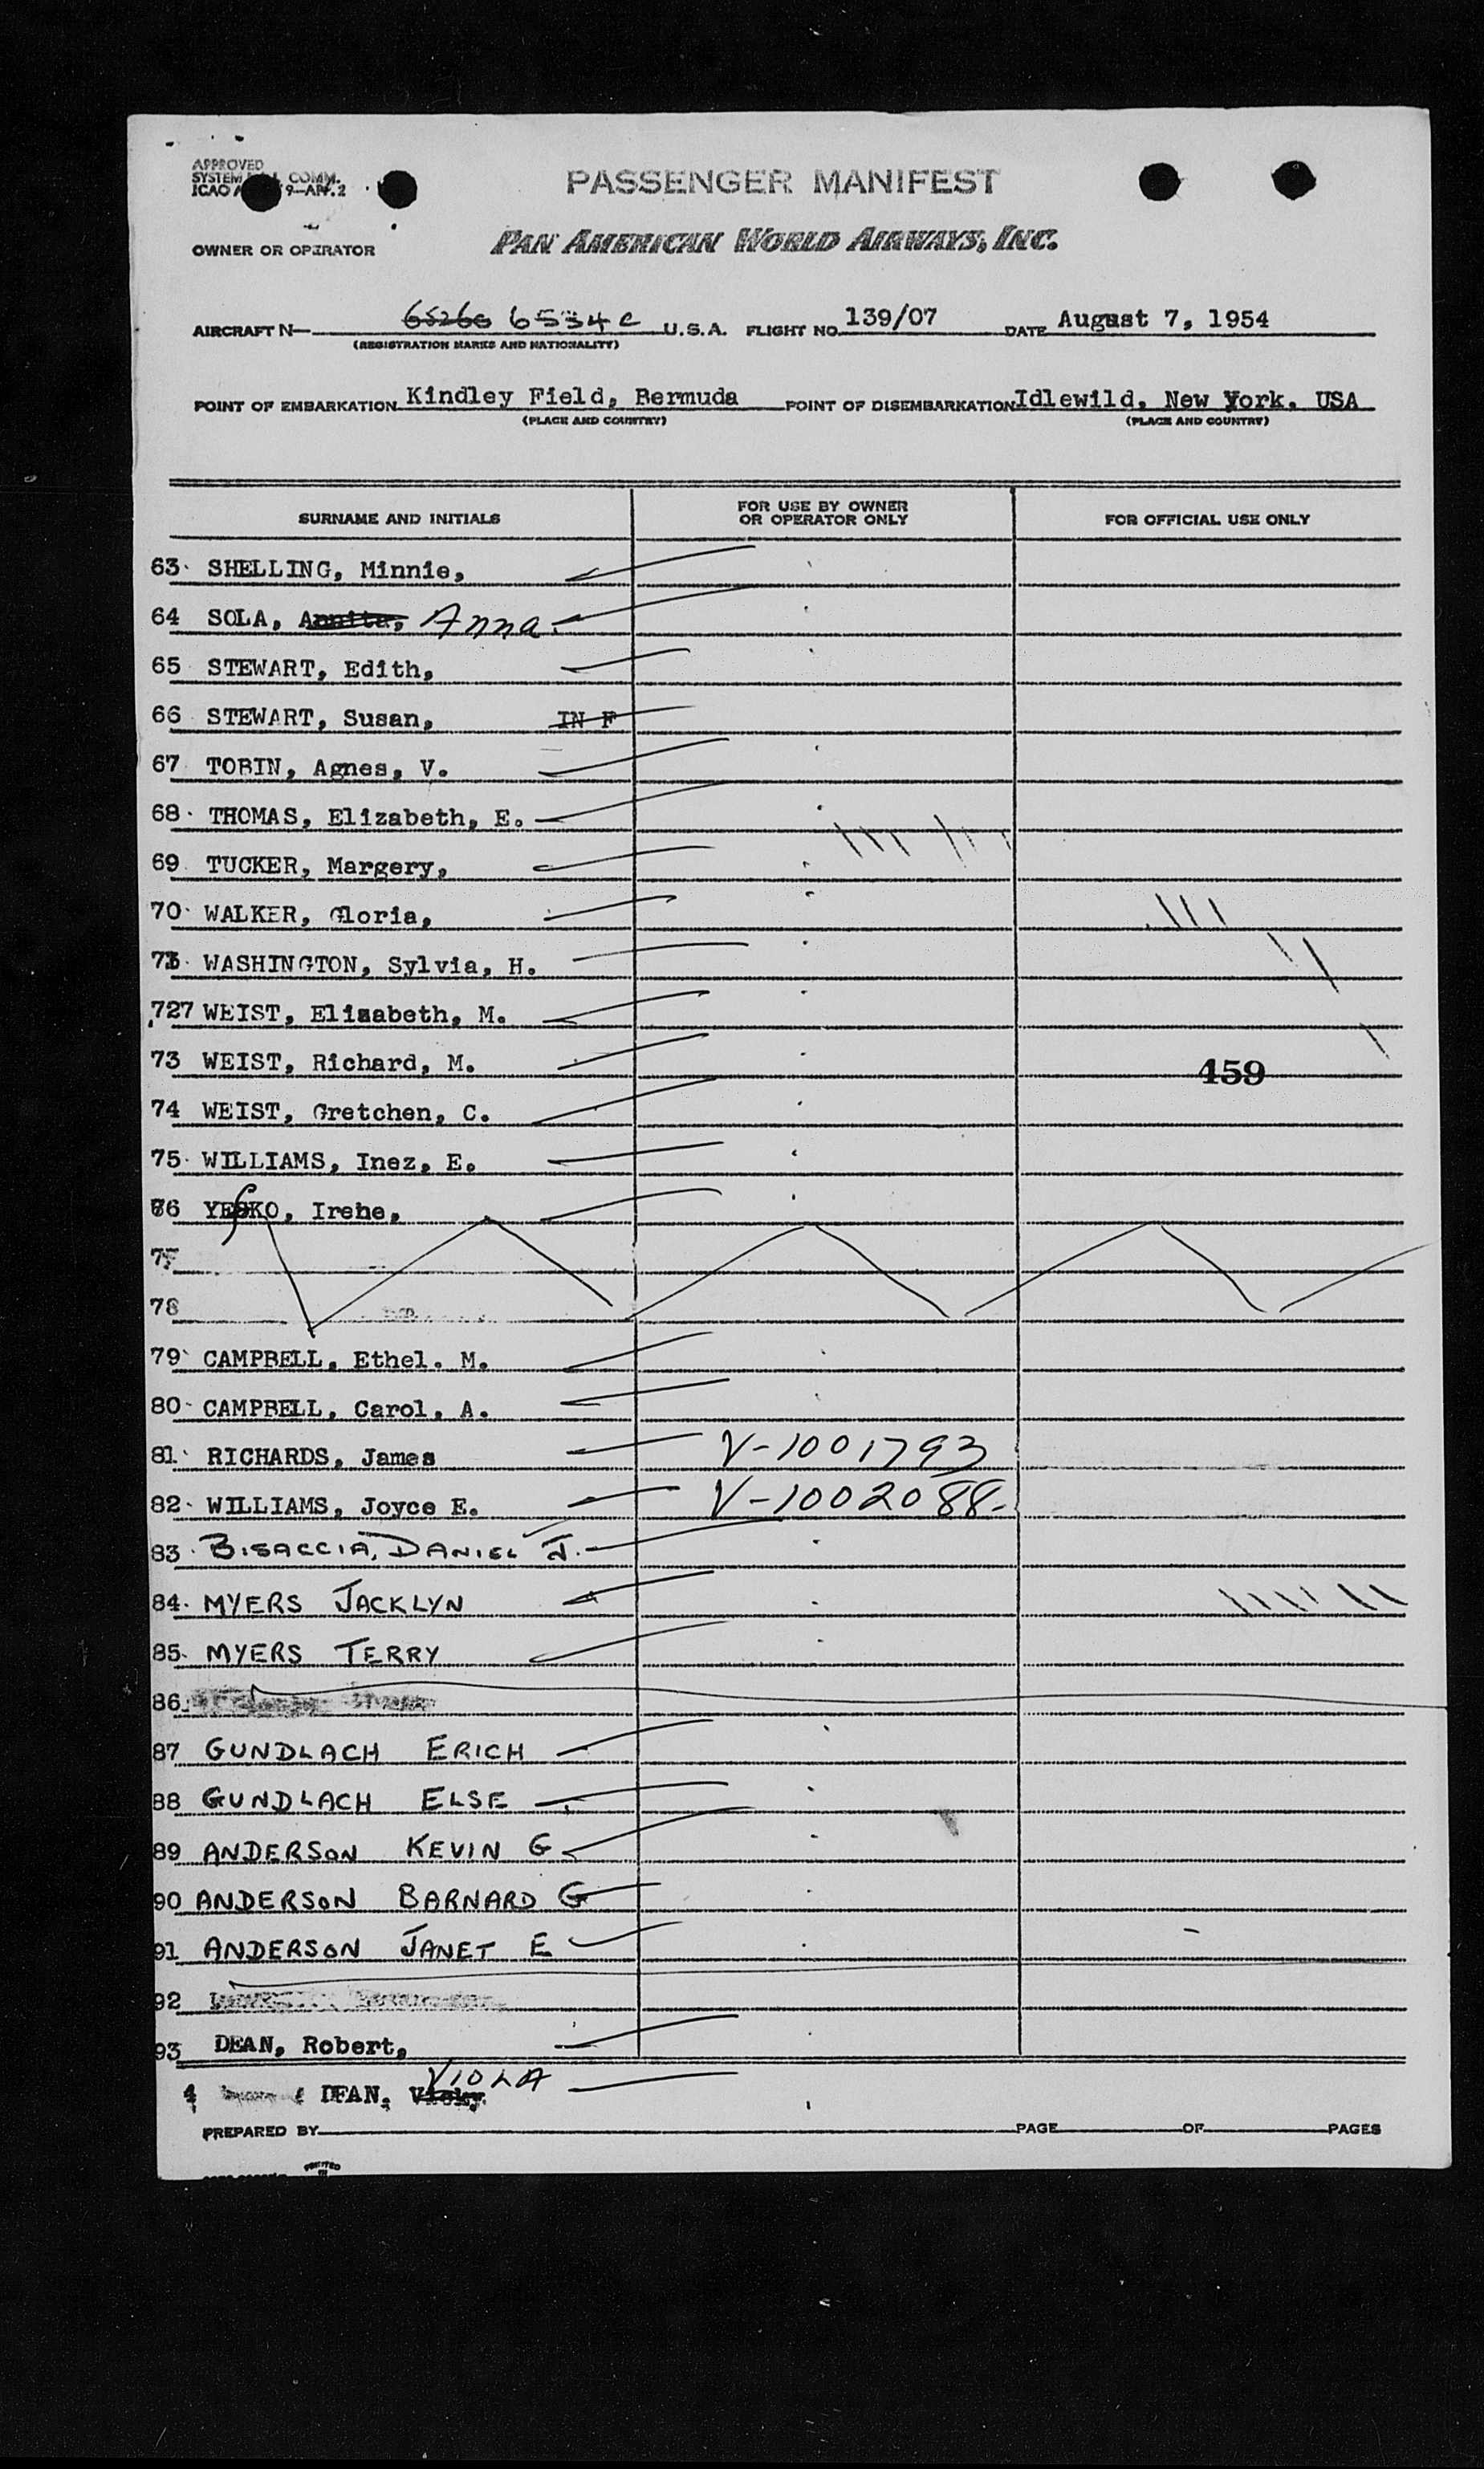 APPROVED
SYSTEM COMM.
ICAO 9—APP. 2
PASSENGER MANIFEST
OWNER OR OPERATOR PAN AMERICAN WORLD AIRWAYS, INC.
AIRCRAFT N— 6526c 6534c U.S.A. FLIGHT NO. 139/07 DATE August 7, 1954
(REGISTRATION MARKS AND NATIONALITY)
POINT OF EMBARKATION Kindley Field, Bermuda POINT OF DISEMBARKATION Idlewild, New York. USA
(PLACE AND COUNTRY) (PLACE AND COUNTRY)
SURNAME AND INITIALS FOR USE BY OWNER OR OPERATOR ONLY FOR OFFICIAL USE ONLY
63. SHELLING, Minnie,
64 SOLA, Annita, Anna.
65 STEWART, Edith,
66 STEWART, Susan, IN F
67 TOBIN, Agnes, V.
68. THOMAS, Elizabeth, E.
69 TUCKER, Margery,
70. WALKER, Gloria,
71. WASHINGTON, Sylvia, H.
727 WEIST, Elisabeth, M.
73 WEIST, Richard, M.
459
74 WEIST, Gretchen, C.
75. WILLIAMS, Inez, E.
76 YESKO, Irene,
77
78
79. CAMPBELL, Ethel. M.
80. CAMPBELL, Carol, A.
81. RICHARDS, James V-1001793
82. WILLIAMS, Joyce E. V-1002088-
83. BISACCIA, DANIEL J.
84. MYERS JACKLYN
85. MYERS TERRY
86.
87 GUNDLACH ERICH
88 GUNDLACH ELSE
89 ANDERSON KEVIN G
90 ANDERSON BARNARD G
91 ANDERSON JANET E
92
93 DEAN, Robert,
VIOLA
4 DEAN, Vicky.
PREPARED BY PAGE OF PAGES
PRINTED